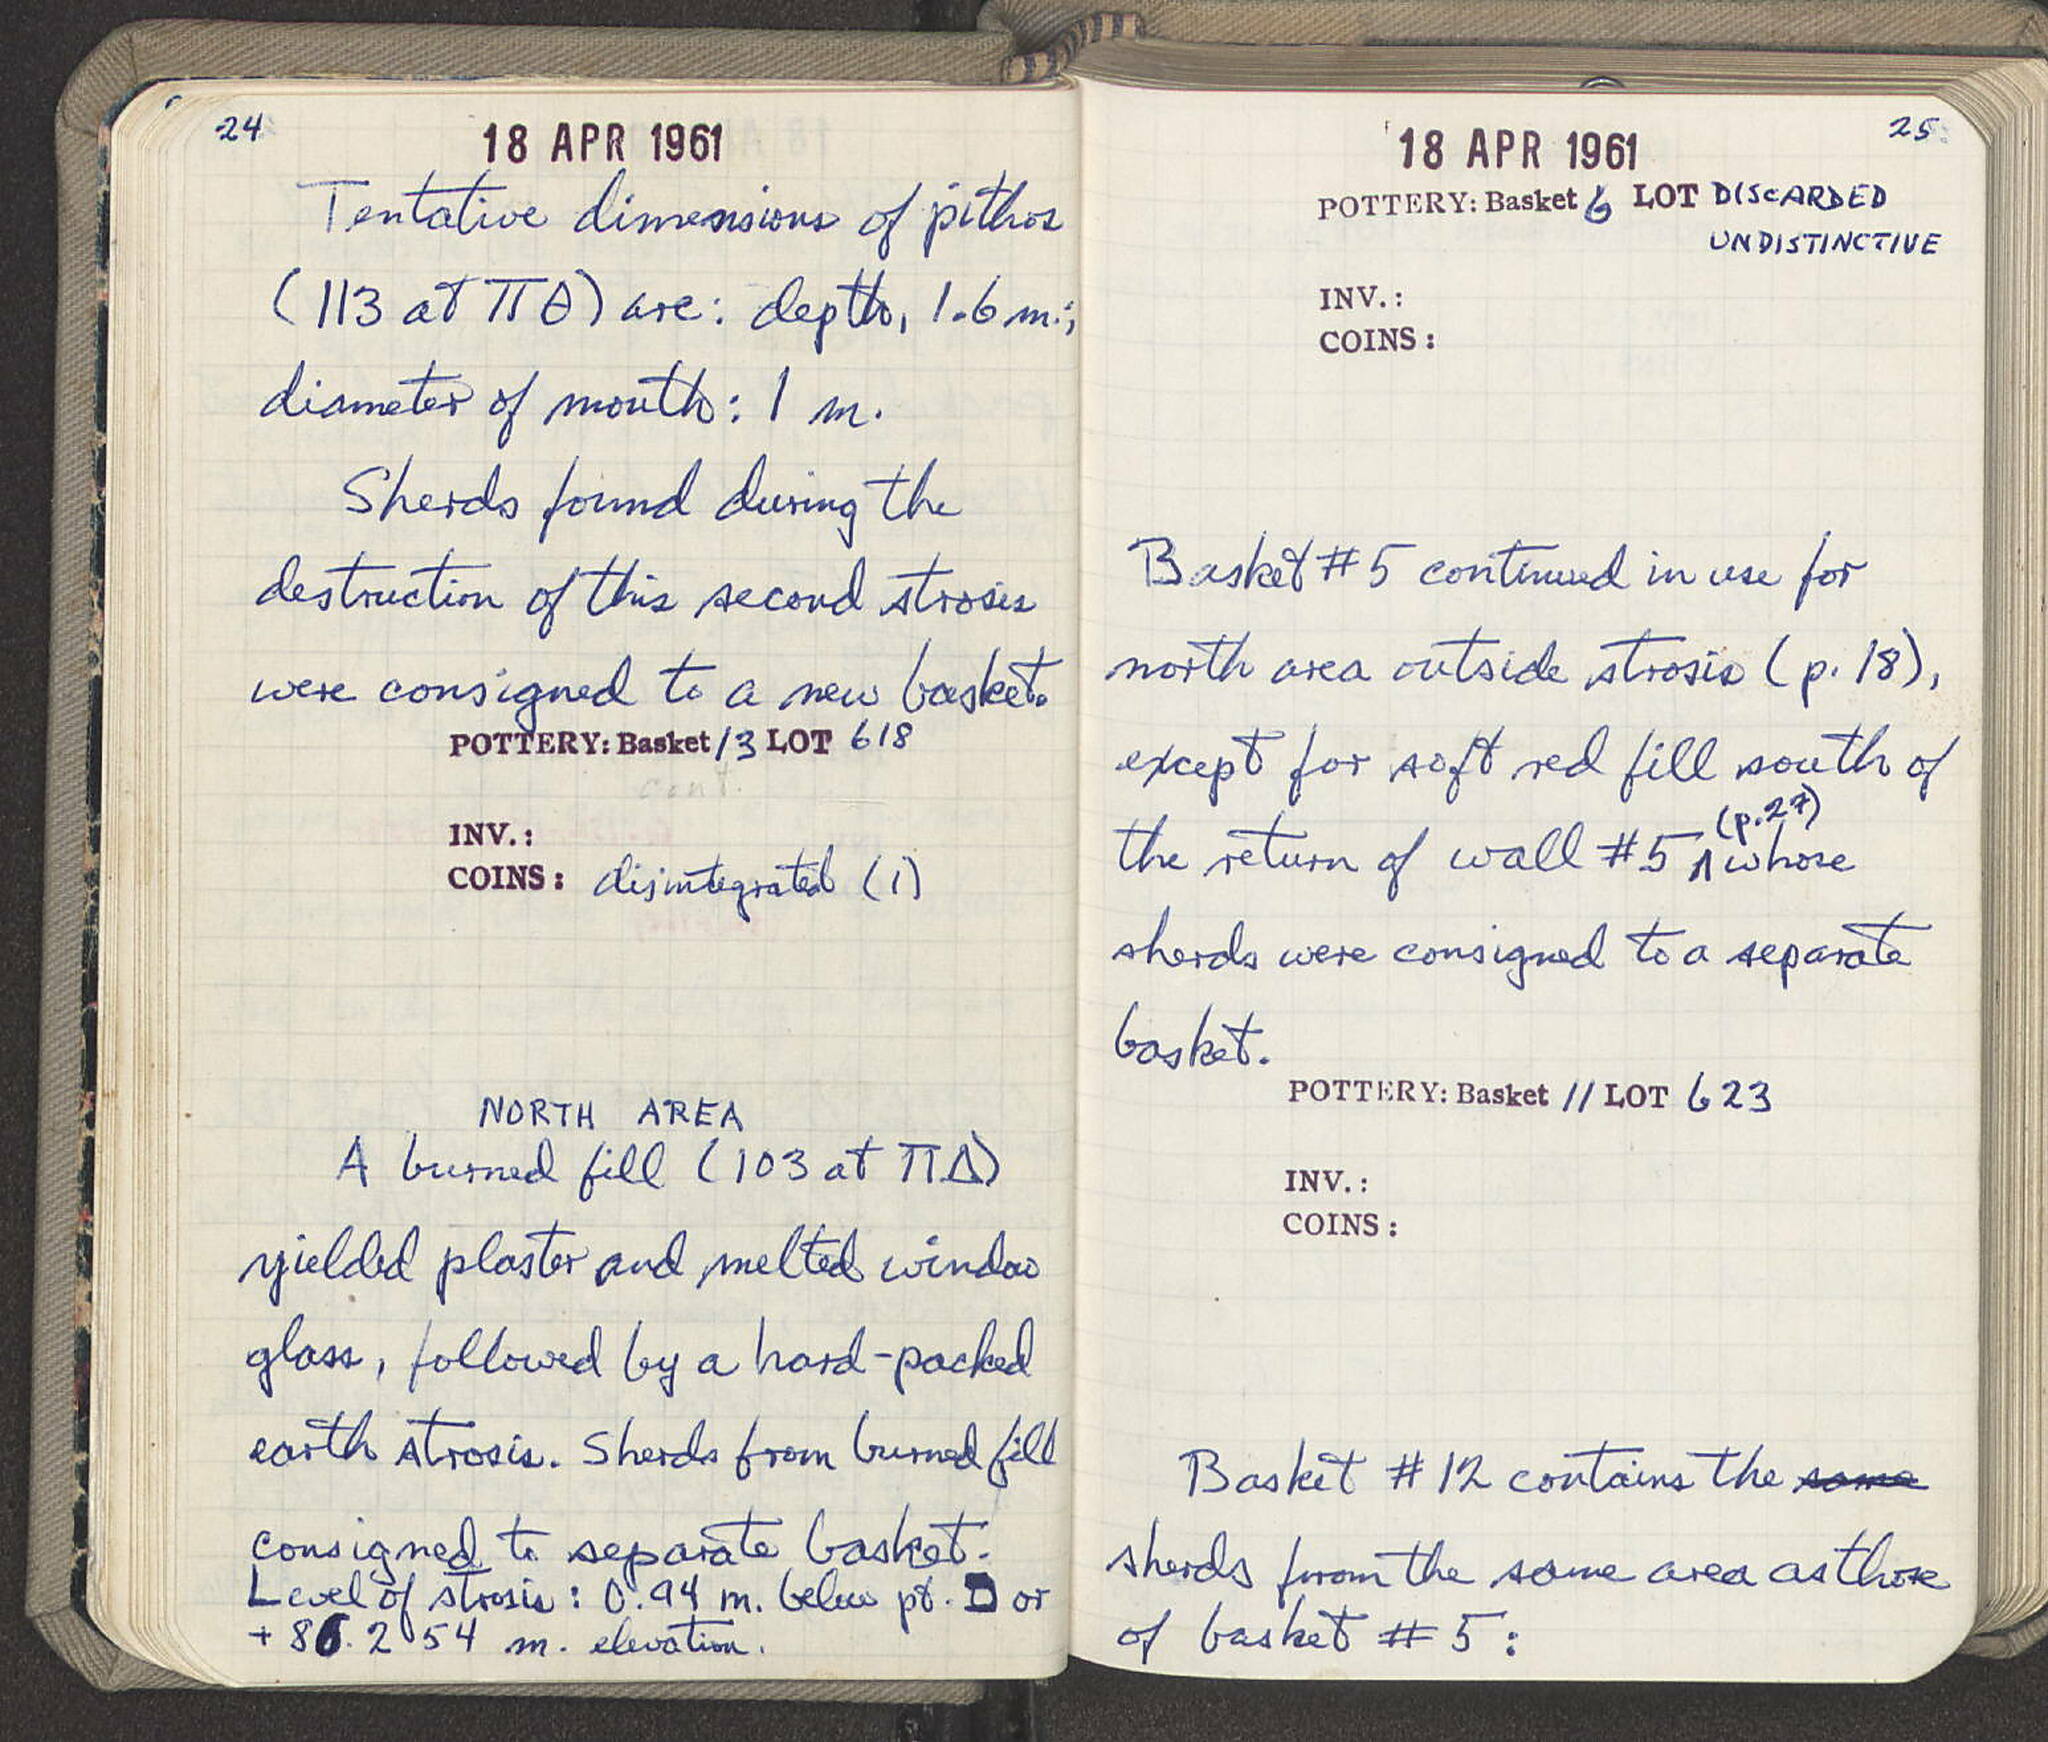 24
18 APR 1961
Tentative dimensions of pithos
(113 at ΠΘ) are: depth, 1.6 m.;
diameter of mouth: 1 m.
Sherds found during the
destruction of this second strosis
were consigned to a new basket.
POTTERY: Basket 13 LOT 618
cont.
INV.:
COINS: disintegrated (1)
NORTH AREA
A burned fill (103 at ΠΔ)
yielded plaster and melted window
glass, followed by a hard-packed
earth strosis. Sherds from burned fill
consigned to separate basket.
Level of strosis: 0.94 m. below pt. D or
+86.254 m. elevation.
25
18 APR 1961
POTTERY: Basket 6 LOT DISCARDED
UNDISTINCTIVE
INV.:
COINS:
Basket #5 continued in use for
north area outside strosis (p. 18),
except for soft red fill south of
(p. 27)
the return of wall #5 ∧ whose
sherds were consigned to a separate
basket.
POTTERY: Basket 11 LOT 623
INV.:
COINS:
Basket #12 contains the same
sherds from the same area as those
of basket #5: